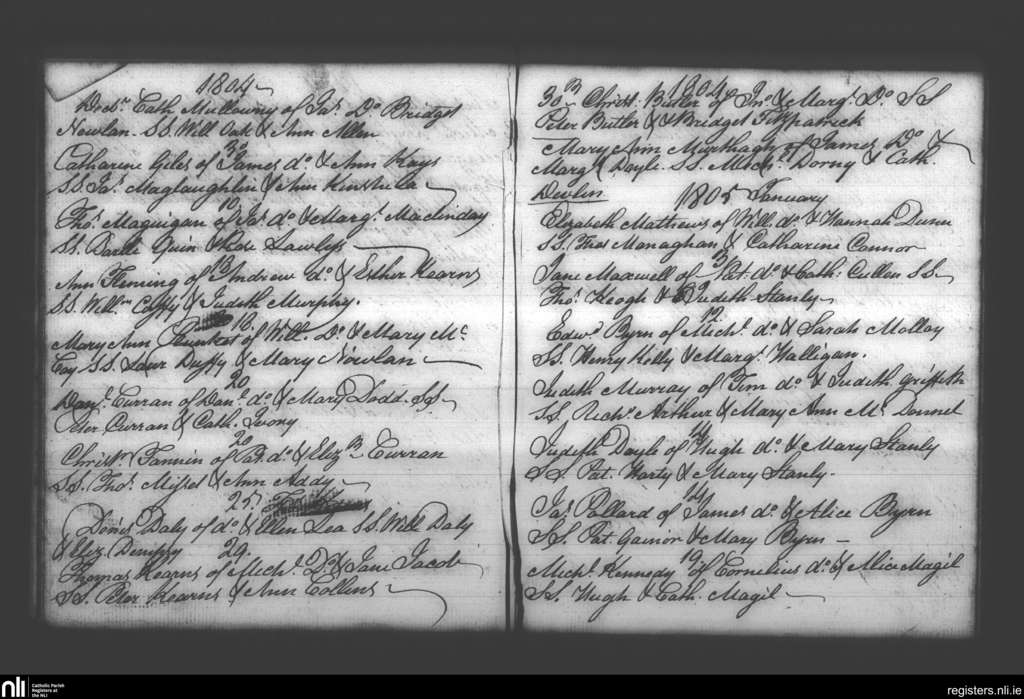 1804
Decr. Cath. Mullowny of Jas. Do. Bridget
Nowlan. SS. Will Oak & Ann Allen
3d
Catharine Giles of James do. & Ann Kays
SS. Jas. Maglaughlin & Ann
10
Thos. Maguigan of Jas. do. & Margt. Maclinday
SS. Bartle Quin & Lawless
13
Ann Fleming of Andrew do. & Esther Kearns
SS. Willm. Caffry & Judith Murphy.
16.
Mary Ann Plunket of Will. Do. & Mary Mc.
Coy SS. Laur Duffy & Mary Nowlan
20
Danl. Curran of Danl. do. & Mary Dodd. SS.
Peter Curran & Cath. Ivory
20
Christr. Fannin of Pat. do. & Eliz. Curran
SS. Thos. Misset & Ann Addy
25.
Denis Daly of do. & Ellen Lea SS. Will Daly
& Eliz. Dempsy 29.
Thomas Kearns of Michl. Do. & Jane Jacob
SS. Peter Kearns & Ann Collins
1804
30 Christ. Butler of Jno. & Margt. Do. SS
Peter Butler & Bridget Fitzpatrick
Mary Ann Murthagh of James Do. &
Margt. Doyle. SS. Michl. Dorny & Cath.
Devlin
1805 January
Elizabeth Mathews of Will. do. & Hannah Dunn
SS. Thos Managhan & Catharine Connor
3
Jane Maxwell of Pat. do. & Cath. Cullen SS.
9
Thos. Keogh & Judith Stanly
12
Edwd. Byrn of Michl. do. & Sarah Molloy
SS. Henry Kelly & Margt. Halligan.
Judith Murray of Tim do. & Judith Griffith
SS Richd. Arthur & Mary Ann Mc. Donnel
14
Judith Doyle of Hugh do. & Mary Stanly
SS Pat. Harty & Mary Stanly.
14
Jas. Pollard of James do. & Alice Byrn
SS. Pat Gainor & Mary Byrn
19
Michl. Kennedy of Cornelius do. & Alice Magil
SS. Hugh & Cath. Magil
nli
Catholic Parish
Registers at
the NLI
registers.nli.ie